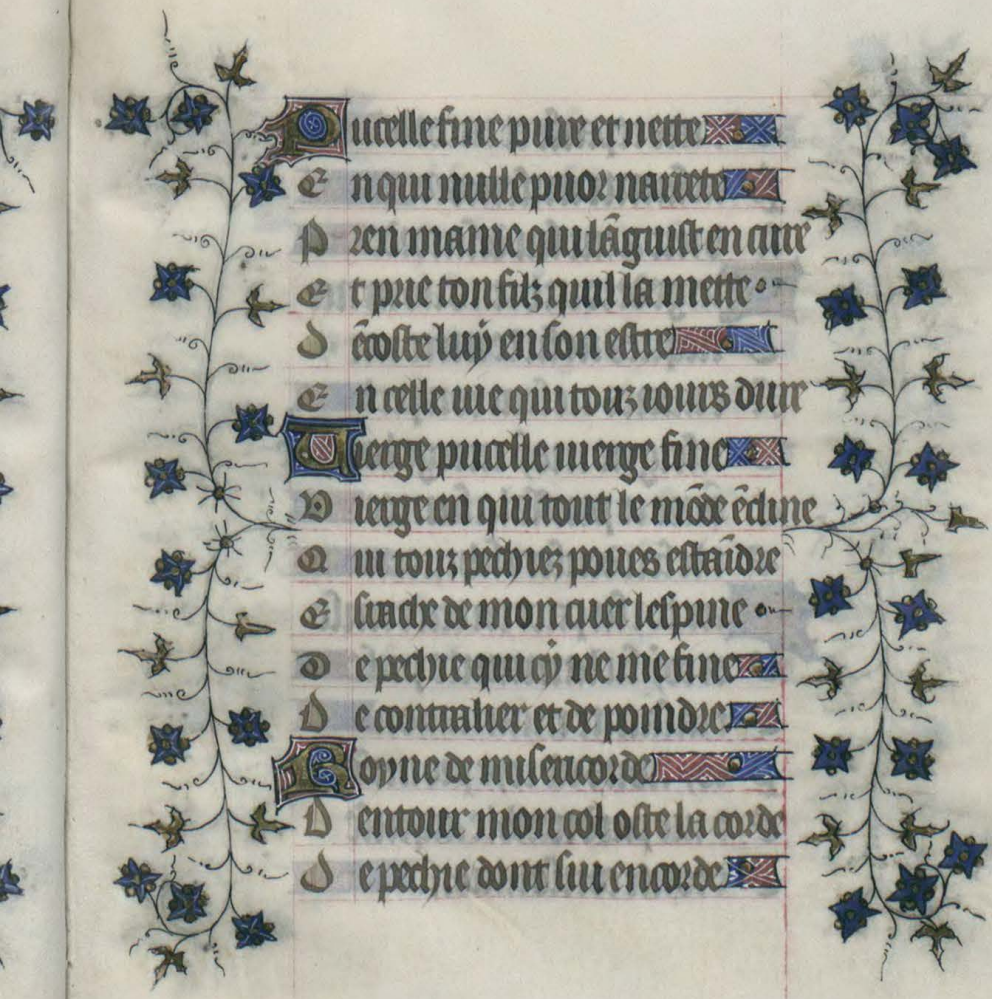 Pucelle fine pure et nette
En qui nulle puor na recte
Pren mame qui lãguist en cure
Et prie ton filz quil la mette
Decoste luy en son estre
En celle uie qui touz iours dure
Uierge pucelle uierge fine
Vierge en qui tout le mõde ẽcline
Qui touz pechiez poues estaĩdre
Esrache de mon cuer lespine
De pechie qui cy ne me fine
De contralier et de poindre
Royne de misericorde
Dentour mon col oste la corde
De pechie dont sui encorde